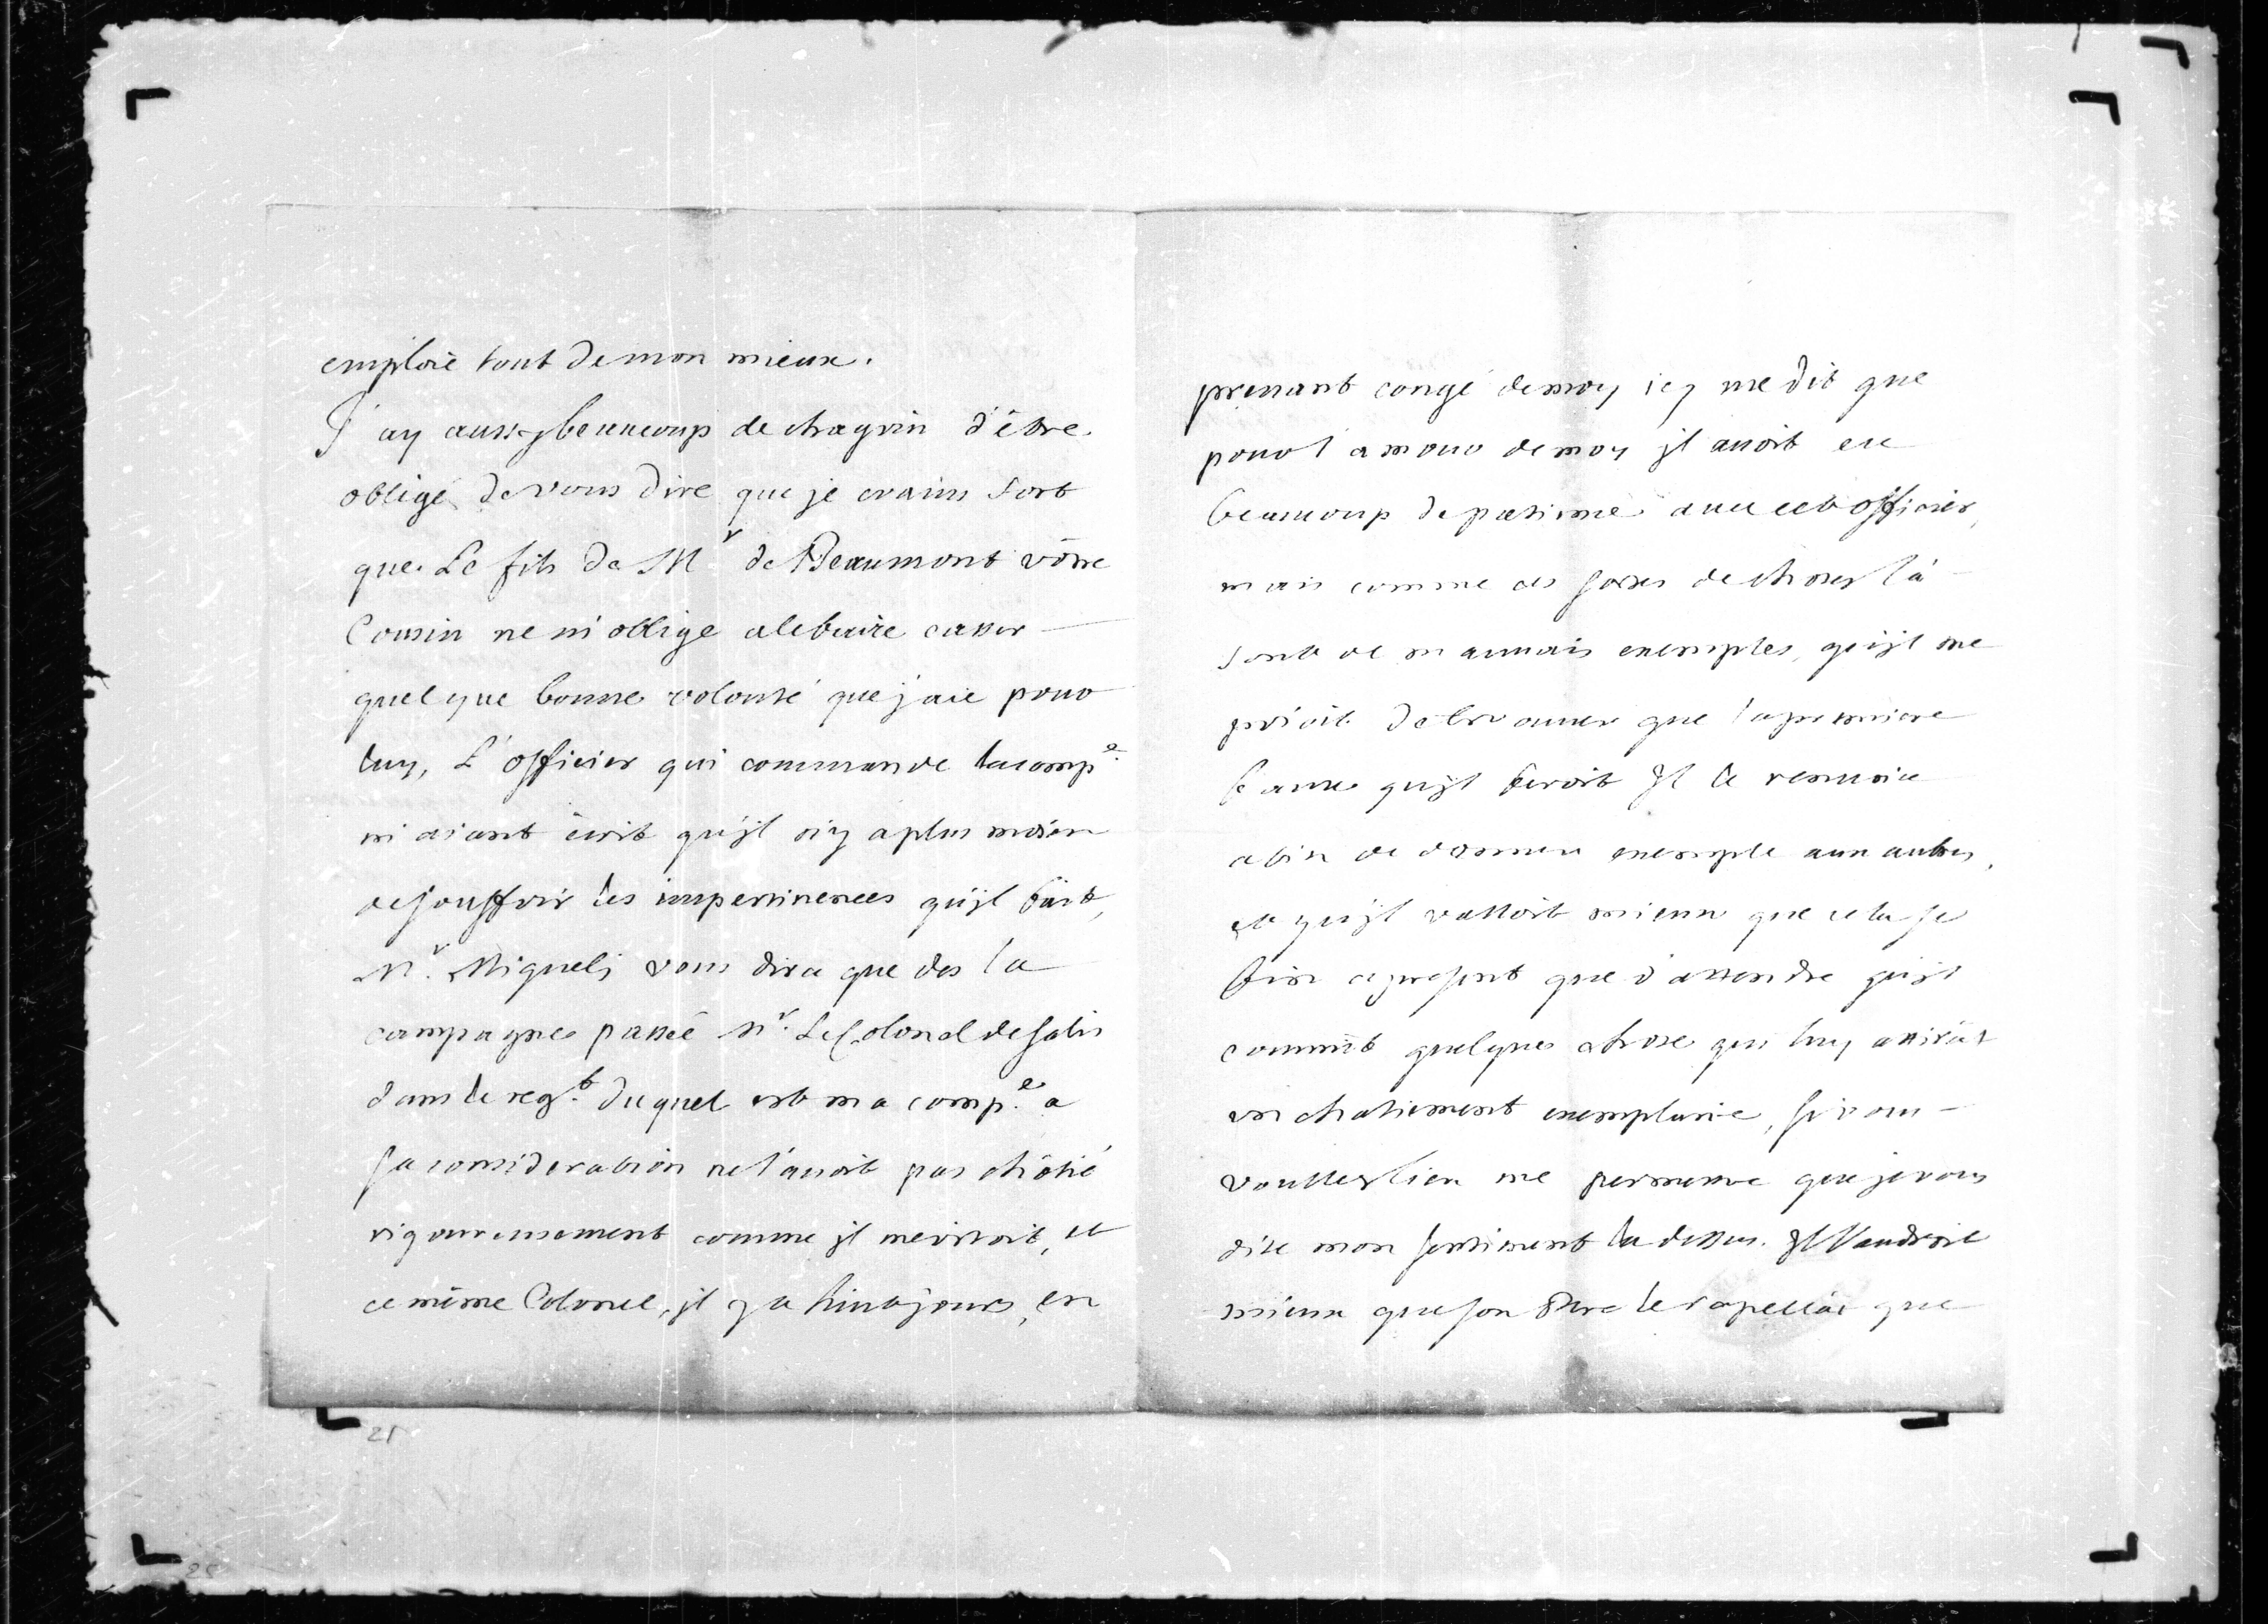 emploié tout de mon mieux.
J'ay aussy beaucoup de chagrin d'être
obligé de vous dire que je crains fort
que Le fils de Mr de Beaumont vôtre
Cousin ne m'oblige a le faire casser
quelque bonne volonté que j'aie pour
luy, L'officier qui commande la compe.
m'aiant écrit qu'jl n'y a plus moien
de souffrir les impertinences qu'jl fait,
Mr. Miguely vous dira que des la
campagne passée Mr. Le Colonel de Salis
dans le regt. duquel est ma compe. a
sa consideration ne l'auoit pas châtié
rigoureusement comme jl meritoit, et
ce même Colonel, jl y a huit jours, en
prenant congé de moy icy me dit que
pour l'amour de moy jl auoit eu
beaucoup de patience auec cet officier,
mais comme ces sortes de choses là
sont de mauuais exemples, qu'jl me
prioit de trouuer que la premiere
faute qu'jl feroit Jl le renuoie
afin de donner exemple aux autres,
et qu'jl valloit mieux que cela se
fit a present que d'attendre qu'jl
commît quelque chose qui luy attirât
un chatiement exemplaire, si vous
voullez bien me permettre que je vous
dise mon sentiment la dessus. Jl Vaudroit
mieux que son Pere le rapellât que
21
25